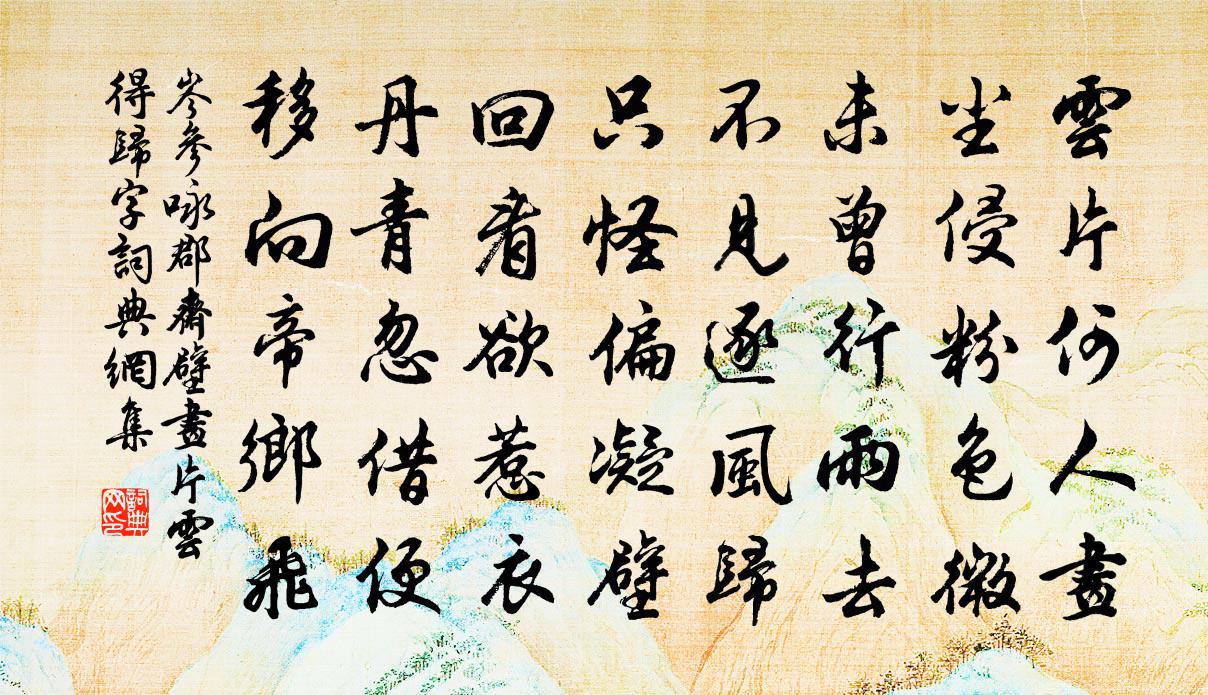 雲片何人畫
尘侵粉色微
未曾行雨去
不見逐風歸
只怪偏凝壁
回看欲惹衣
丹青忽借便
移向帝鄉飛
岑參咏郡齋壁畫片雲
得歸字詞典網集
詞典网印